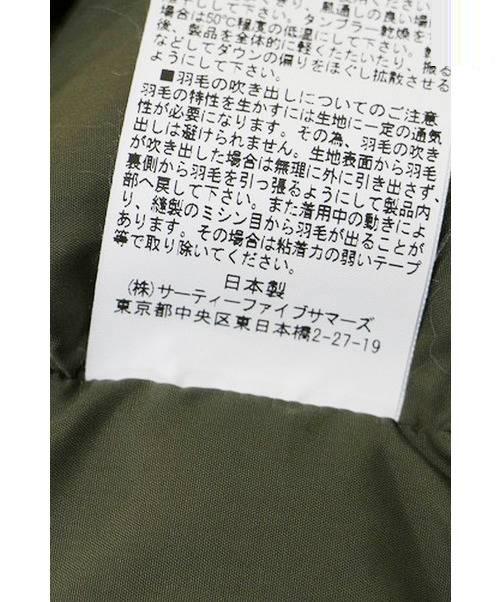 風通しの良い場
陰干しして下さい。タンブラー乾燥を
場合は50℃程度の低温にして下さい。
後、製品を全体的に軽くたたいたり、振る
などしてダウンの偏りをほぐし拡散させる
ようにして下さい。
■羽毛の吹き出しについてのご注意
羽毛の特性を生かすには生地に一定の通気
性が必要になります。その為、羽毛の吹き
出しは避けられません。生地表面から羽毛
が吹き出した場合は無理に外に引き出さず、
裏側から羽毛を引っ張るようにして製品内
部へ戻して下さい。また着用中の動きによ
り、縫製のミシン目から羽毛が出ることが
あります。その場合は粘着力の弱いテープ
等で取り除いてください。
日本製
(株)サーティーファイブサマーズ
東京都中央区東日本橋2-27-19